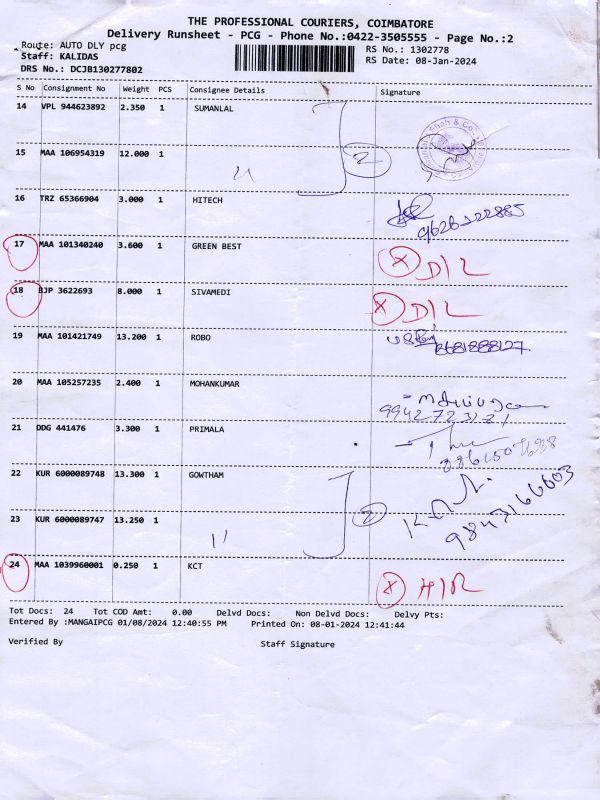 THE PROFESSIONAL COURIERS, COIMBATORE
Delivery Runsheet - PCG - Phone No.:0422-3505555 - Page No.:2
Route: AUTO DLY pcg RS No.: 1302778
Staff: KALIDAS RS Date: 08-Jan-2024
DRS No.: DCJB130277802
S No Consignment No Weight PCS Consignee Details Signature
14 VPL 944623892 2.350 1 SUMANLAL
Shah & Co
15 MAA 106954319 12.000 1 2
16 TRZ 65366904 3.000 1 HITECH
9626222885
17 MAA 101340240 3.600 1 GREEN BEST
X D/L
18 BJP 3622693 8.000 1 SIVAMEDI
X D/L
19 MAA 101421749 13.200 1 ROBO
8681888127
20 MAA 105257235 2.400 1 MOHANKUMAR
9942723121
21 DDG 441476 3.300 1 PRIMALA
22 KUR 6000089748 13.300 1 GOWTHAM
9843166603
23 KUR 6000089747 13.250 1 2
24 MAA 1039960001 0.250 1 KCT
X
Tot Docs: 24 Tot COD Amt: 0.00 Delvd Docs: Non Delvd Docs: Delvy Pts:
Entered By :MANGAIPCG 01/08/2024 12:40:55 PM Printed On: 08-01-2024 12:41:44
Verified By Staff Signature